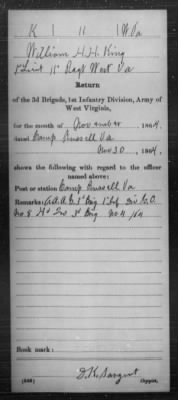 K | 11 | W Va
William H. H. King
1 Lieut 11 Regt West Va
Return
of the 3d Brigade, 1st Infantry Division, Army of
West Virginia,
for the month of November, 1864.
dated Camp Russell Va
Nov 30, 1864.
shows the following with regard to the officer
named above:
Post or station Camp Russell Va
Remarks: A.A.A.G. 1" Brig 1" Inf Div G.O.
No. 8 Hd Qrs 3d Brig No. 4 /64
Book mark:
(638)
D. K. Sargent
Copyist.